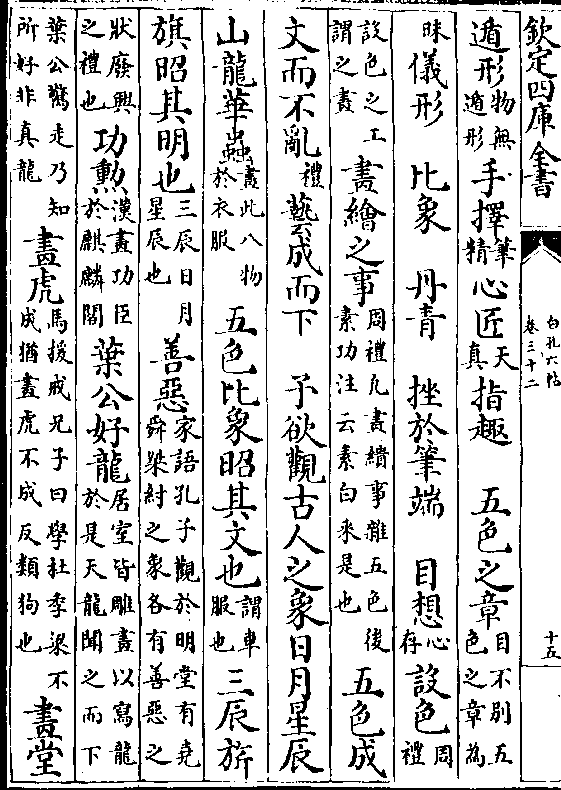 欽定四庫全書
白孔六帖
卷三十二
十五
遁形物無遁形 手擇筆精 心匠天真 指趣 五色之章目不別五色之章為
昧 儀形 比象 丹青 挫於筆端 目想心存 設色周禮
設色之工謂之畫 畫繪之事周禮凡畫繢事雜五色後素功注云素白采是也 五色成
文而不亂禮 藝成而下 予欲觀古人之象日月星辰
山龍華蟲畫此八物於衣服 五色比象昭其文也謂車服也 三辰旂
旗昭其明也三辰日月星辰也 善惡家語孔子觀於明堂有堯舜桀紂之象各有善惡之
狀廢興之禮也 功勲漢畫功臣於麒麟閣 葉公好龍居室皆雕畫以寫龍於是天龍聞之而下
葉公驚走乃知所好非真龍 畫虎馬援戒兄子曰學杜季梁不成猶畫虎不成反類狗也 畫堂